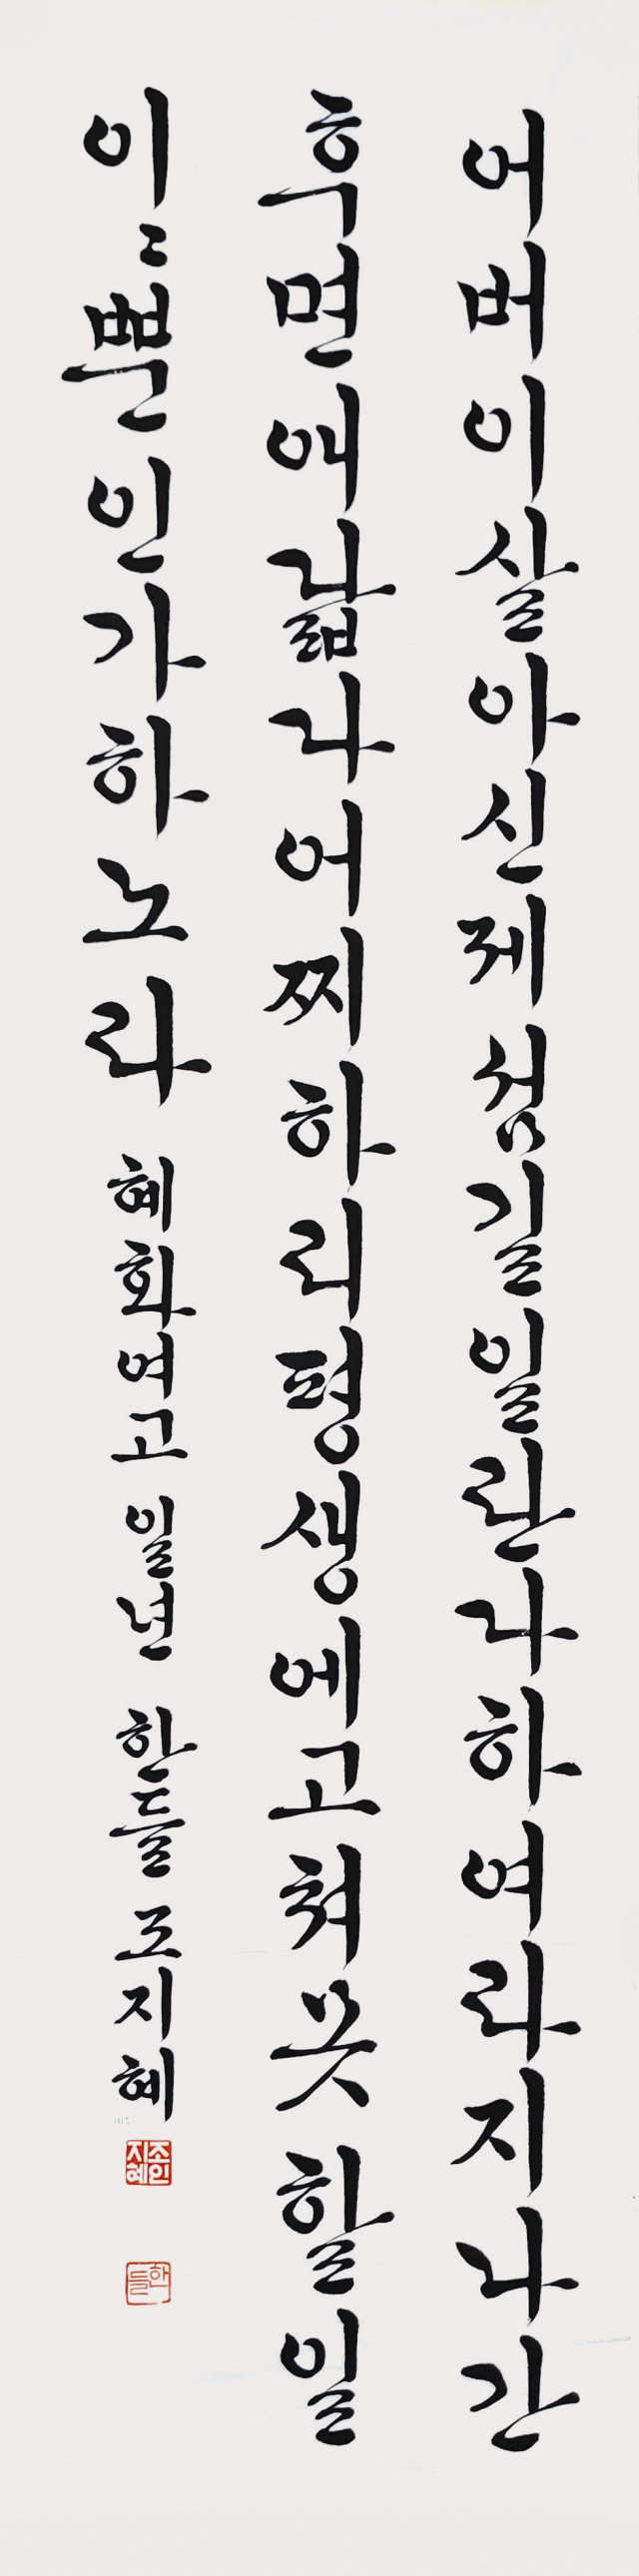 어버이살아신제섬길일란다하여라지나간
후면애닯다어찌하리평생에고쳐못할일
이〻뿐인가하노라 혜화여고 일년 한들 조지혜
조인지혜
한들